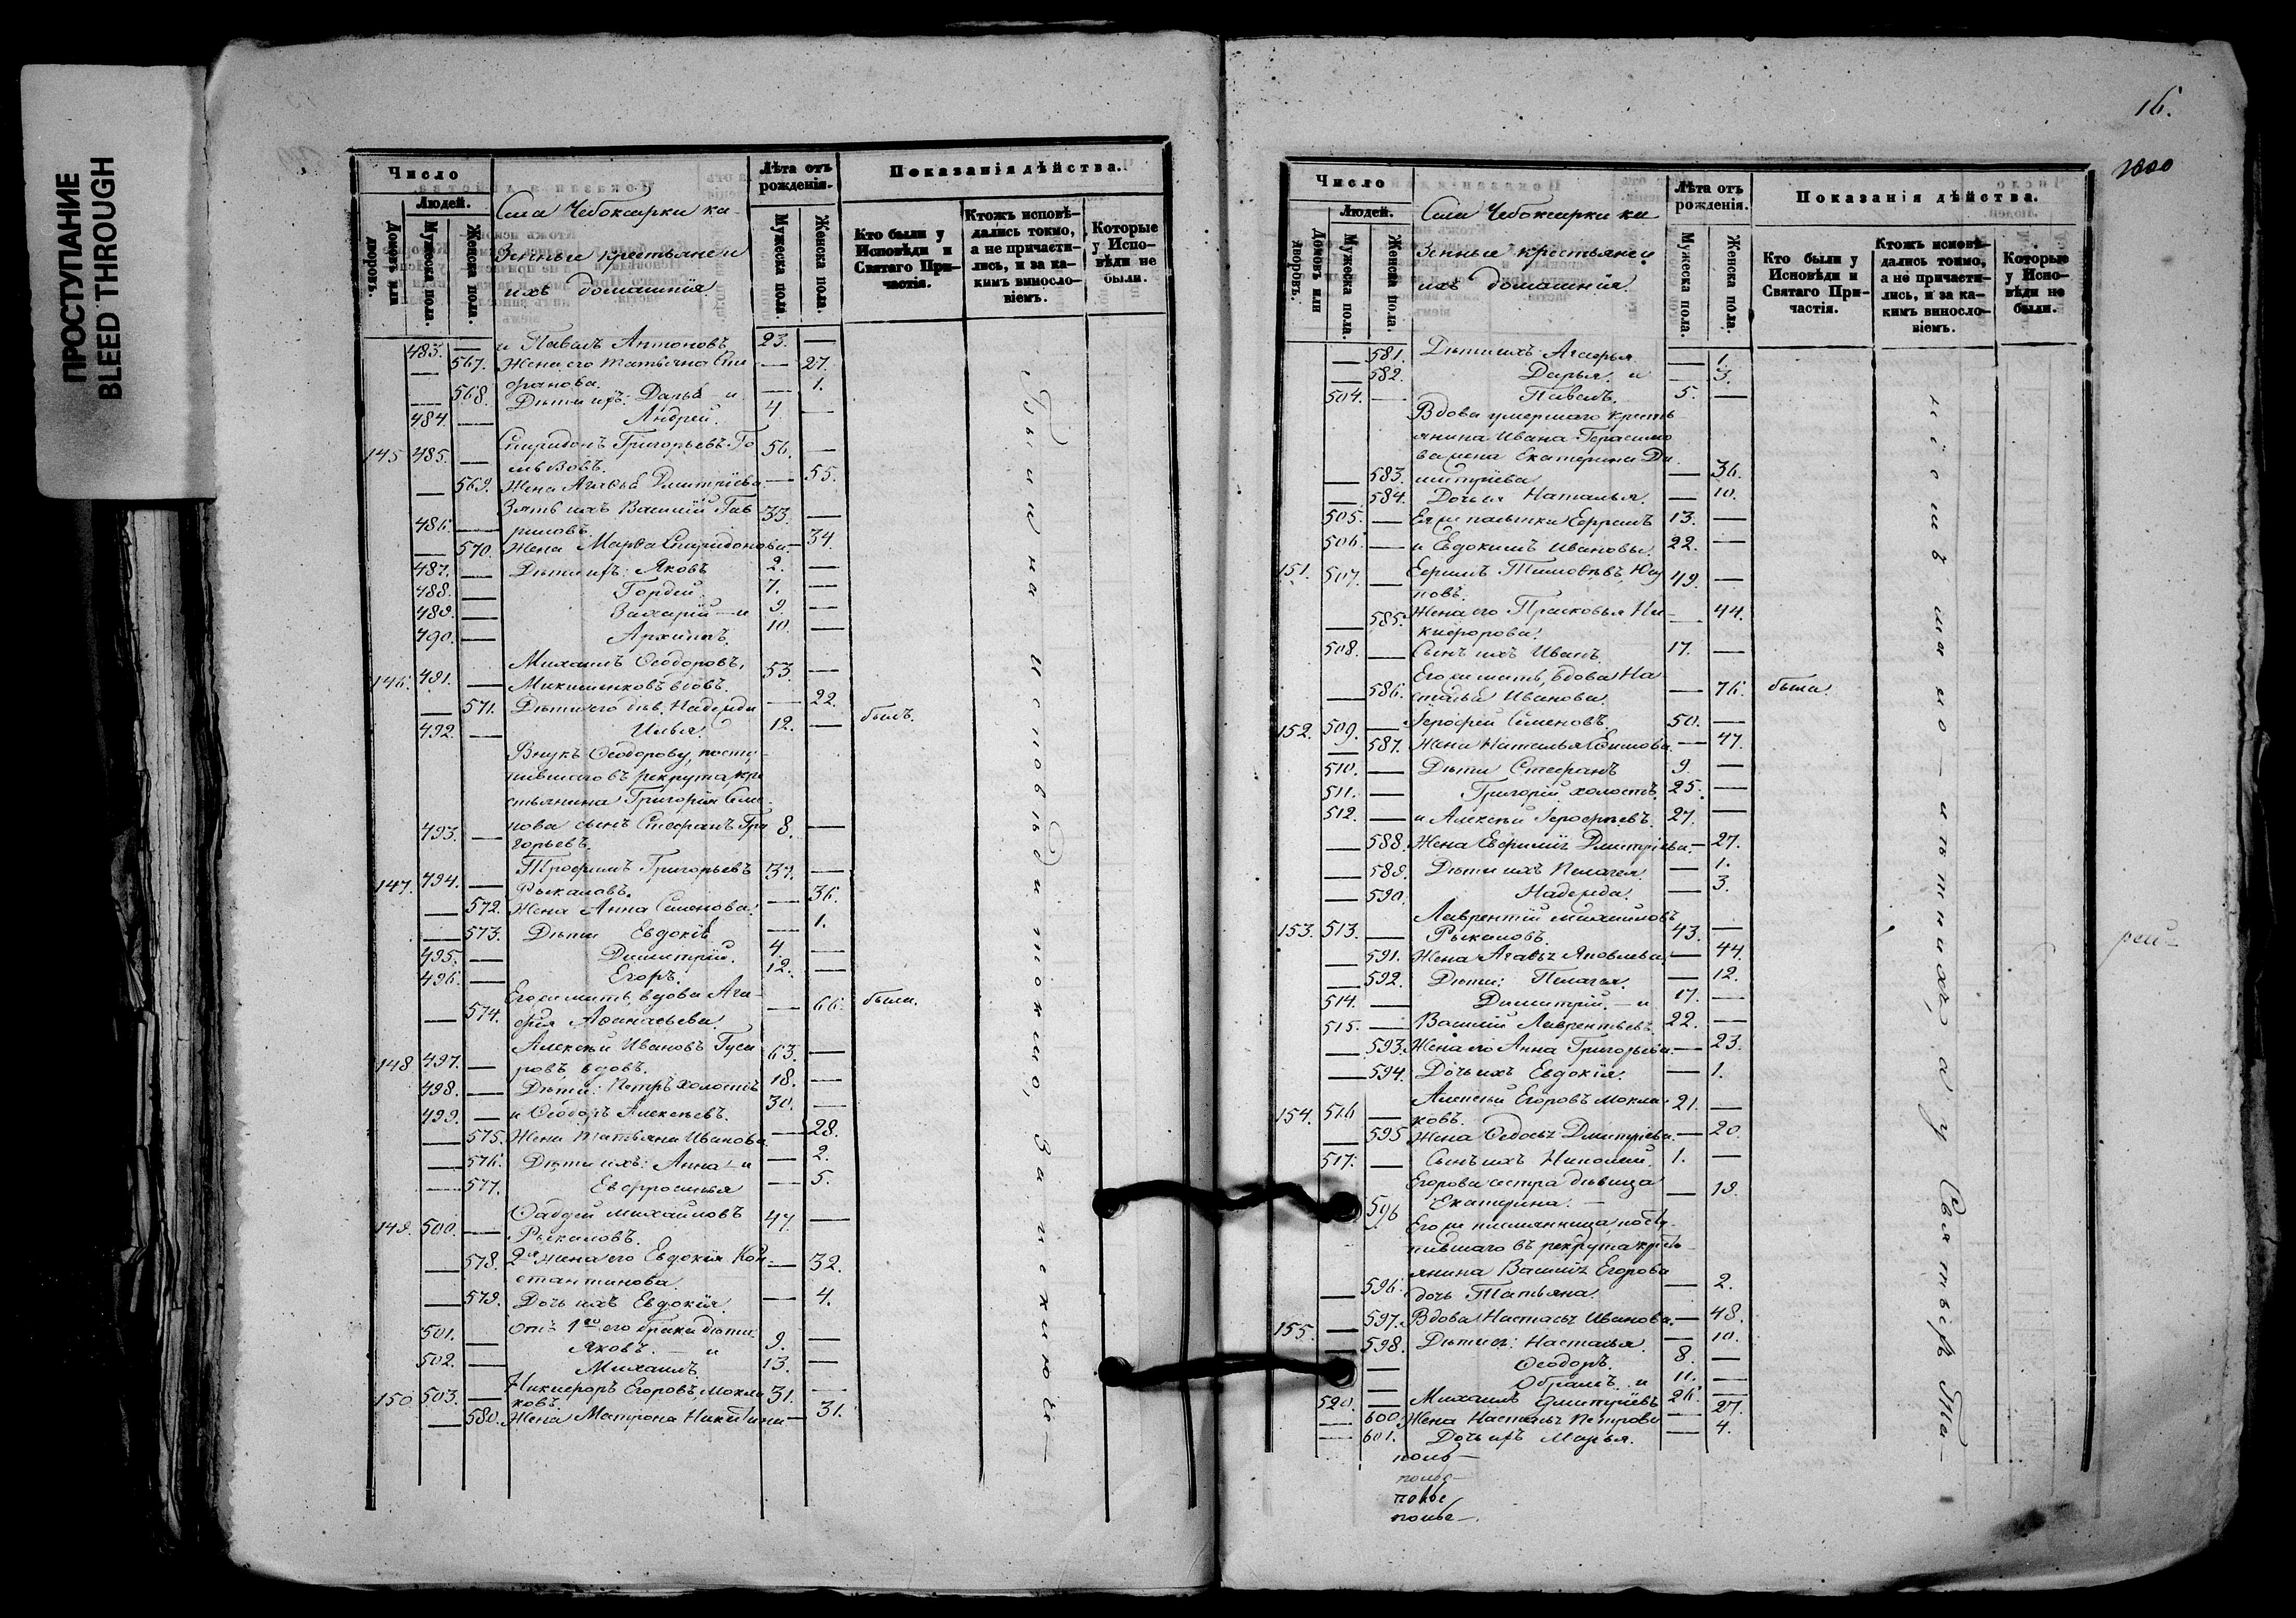 ПРОСТУПАНИЕ
BLEED THROUGH
Число
Людей.
Домовъ или дворовъ.
Мужеска пола.
Женска пола.
Села Чебоксарки ка-
зенные крестьяне и
ихъ домашнія.
Лѣта отъ рожденія.
Мужеска пола.
Женска пола.
Показанія дѣйства.
Кто были у Исповѣди и Святаго Причастія.
Ктожъ исповѣ-
дались токмо,
а не причасти-
лись, и за ка-
кимъ винословіемъ.
Которые у Испо-
вѣди не были.
483. — и Павелъ Антоновъ 23. —
— 567. Жена его Татьяна Сте — 27.
фанова.
— 568. Дѣти ихъ: Дарья и — 1.
484. — Андрей. 4. —
145 485. — Спиридонъ Григорьевъ 56. —
— 569. Жена Агаѳья Дмитріева — 55.
Зять ихъ Василій Гав
486. — риловъ. 33. —
— 570. Жена Марѳа Спиридонова. — 34.
487. — Дѣти ихъ: Яковъ 2. —
488. — Гордей. 7. —
489. — Захарій — и 9. —
490. — Архипъ. 10. —
Михаилъ Ѳеодоровъ,
146. 491. — Микишенковъ вдовъ. 53. —
— 571. Дѣти его дѣв. Надежда — 22.
492. — Илья. 12. — былъ.
Внукъ Ѳеодорову, посту-
пившаго въ рекрута, кре
стьянина Григорія Семе
493. — нова сынъ Стефанъ Гри 8. —
горьевъ.
Трофимъ Григорьевъ
147. 494. — Рыкаловъ. 37. —
— 572. Жена Анна Семенова. — 36.
— 573. Дѣти Евдокія — 1.
495. — Димитрій. 4. —
496. — Егоръ. 12. —
Его же мать, вдова Ага-
— 574. фія Аѳанасьева — 66. была.
Алексѣй Ивановъ Гуса
148 497. — ровъ, вдовъ. 63. —
498. — Дѣти: Петръ холостъ 18. —
499. — и Ѳеодоръ Алексѣевъ. 30. —
— 575. Жена Татьяна Иванова. — 28.
— 576. Дѣти ихъ: Анна — и — 2.
— 577. Евфросинья — 5.
Ѳаддей Михайловъ
149. 500. — Рыкаловъ. 47. —
— 578. 2я жена его Евдокія Кон- — 32.
стантинова
— 579. Дочь ихъ Евдокія. — 4.
501. — Отъ 1го его брака дѣти: Яковъ. — и 9. —
502. — Михаилъ. 13. —
150 503. — Никифоръ Егоровъ, Мокла 31. —
ковъ.
— 580. Жена Матрона Никитина — 31.
Были на исповѣди токмо, за исклю-
16.
2000
Число
Людей.
Домовъ или дворовъ.
Мужеска пола.
Женска пола.
Села Чебоксарки ка
зенные крестьяне и
ихъ домашнія.
Лѣта отъ рожденія.
Мужеска пола.
Женска пола.
Показанія дѣйства.
Кто были у Исповѣди и Святаго Причастія.
Ктожъ исповѣ-
дались токмо,
а не причасти-
лись, и за ка-
кимъ винословіемъ.
Которые у Испо-
вѣди не были.
— 581. Дѣти ихъ: Агафья — 1.
— 582. Дарья. и — 3.
504. — Павелъ. 5. —
Вдова умершаго кресть
янина Ивана Герасимо
ва жена Екатерина Ди
— 583. митріева — 36.
— 584. Дочь ея Наталья. — 10.
505. — Ея же пасынки Ефремъ 13. —
506. — и Евдокимъ Ивановы. 22. —
151. 507. — Ефимъ Тимоѳѣевъ, Юсу 49. —
повъ.
— 585. Жена его Прасковья Ни — 44.
кифорова.
508. — Сынъ ихъ Иванъ. 17. —
Его же мать, вдова На
— 586. талья Иванова. — 76. была.
152. 509. — Ерофей Семеновъ. 50. —
— 587. Жена Наталья Ефимова. — 47.
510. — Дѣти Стефанъ 9. —
511. — Григорій холостъ. 25. —
512. — и Алексѣй Ерофѣевъ. 27. —
— 588. Жена Евфимія Дмитріева. — 27.
— 589. Дѣти ихъ Пелагея. — 1.
— 590. Надежда. — 3.
Лаврентій Михайловъ
153. 513. — Рыкаловъ. 43. —
— 591. Жена Агаѳья Яковлева. — 44.
— 592. Дѣти: Пелагея. — 12.
514. — Димитрій. — и 17. —
515. — Василій Лаврентьевъ. 22. —
— 593. Жена его Анна Григорьева. — 23.
— 594. Дочь ихъ Евдокія. — 1.
Алексѣй Егоровъ Мокла
154. 516 — ковъ. 21. —
— 595 Жена Ѳедосья Дмитріева. — 20.
517. — Сынъ ихъ Николай. 1. —
Егорова сестра дѣвица
— 596 Екатерина. — 19.
Его же племянница посту-
пившаго въ рекрута кресть-
янина Василія Егорова
— 596. дочь Татьяна. — 2.
155. — 597. Вдова Настасья Иванова. — 48.
— 598. Дѣти ея: Наталья. — 10.
— Ѳеодоръ. 8. —
— Абрамъ. и 11. —
520. — Михаилъ Дмитріевъ 26. —
— 600. Жена Настасья Петрова — 27.
— 601. Дочь ихъ Марья. — 4.
ніемъ мало-лѣтнихъ, а у Святыхъ Та-